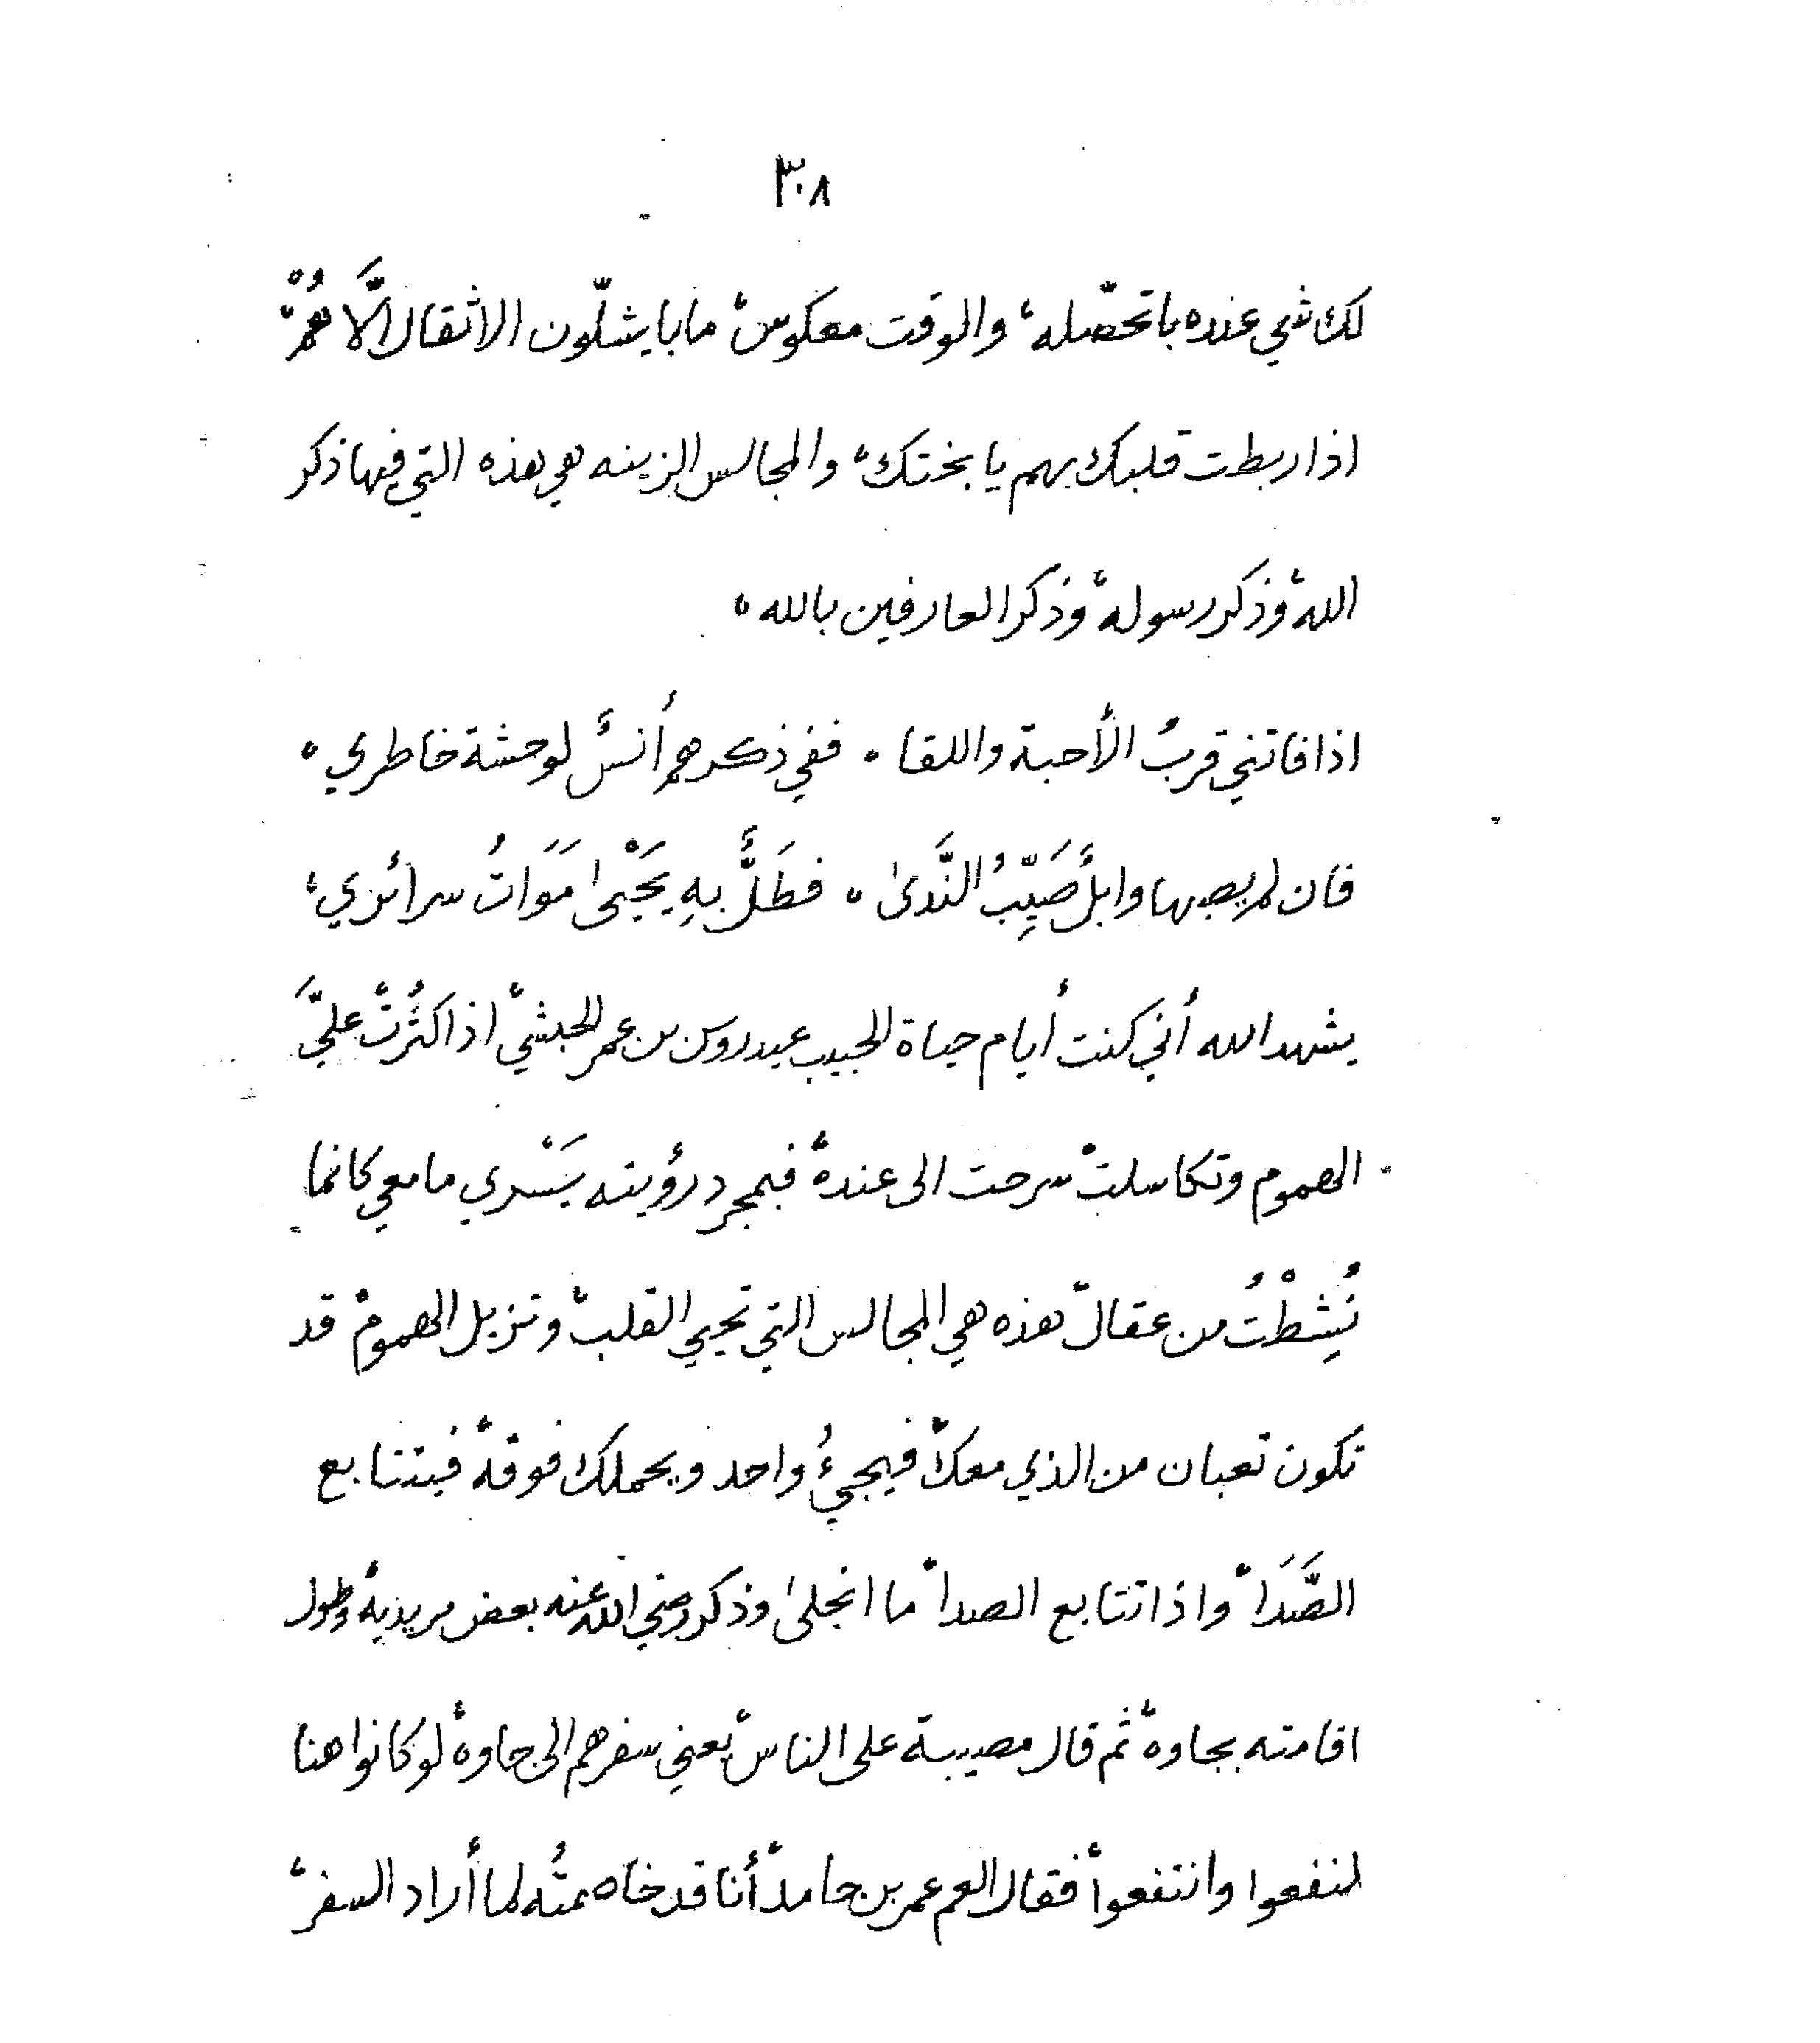 ٣٠٨
لك شي عنده باتحصّله، والوقت معكوس، مابايشلّون الاثقال الَّا هُمْ،
اذا ربطت قلبك بهم يا بختك، والمجالس الزينه هي هذه التي فيها ذكر
الله، وذكر رسوله، وذكر العارفين بالله،
اذا فاتني قربُ الأحبة واللقا ، ففي ذكرهم أُنسٌ لوحشة خاطري ،
فان لم يصبها وابلٌ صَيِّبُ النَّدىٰ ، فطَلٌّ بِهِ يَحْيىٰ مَوَاتُ سرائري ،
يشهد الله أني كنت أيام حياة الحبيب عيدروس بن عمر الحبشي، اذا كَثُرَتْ عليَّ
الهموم وتكاسلت، سرحت الى عنده، فبمجرد رؤيته يَسْري ما معي كانما
نُشِطْتُ من عقال، هذه هي المجالس التي تحيي القلب، وتزيل الهموم، قد
تكون تعبان من الذي معك، فيجيءُ واحد ويحملك فوقه، فيتتابع
الصَّدَا، واذا تتابع الصدا، ما انجلىٰ، وذكر رضي الله عنه بعض مريديه، وطول
اقامته بجاوه، ثم قال مصيبة على الناس، يعني سفرهم الى جاوه، لو كانوا هنا
لنفعوا وانتفعوا، فقال العم عمر بن حامد، أنا قد خاه عمتُه لما أراد السفر،